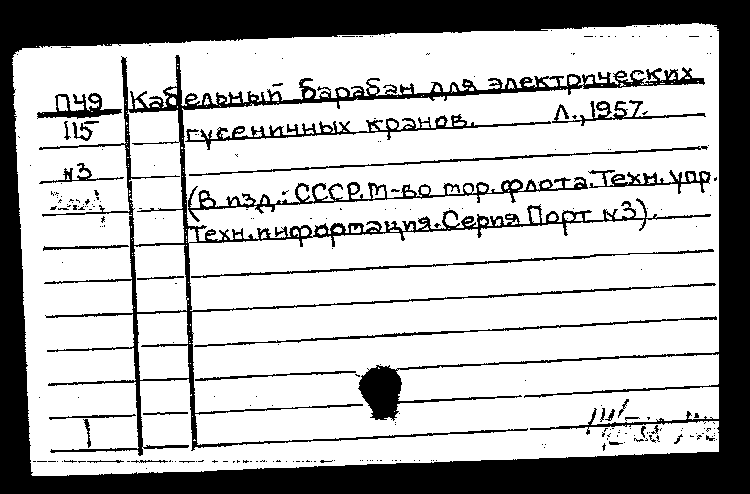 П49 Кабельный барабан для электрических
115 гусеничных кранов. Л., 1957.
№3
(В изд.: СССР. М-во мор. флота. Техн. упр.
Техн. информация. Серия Порт №3).
1